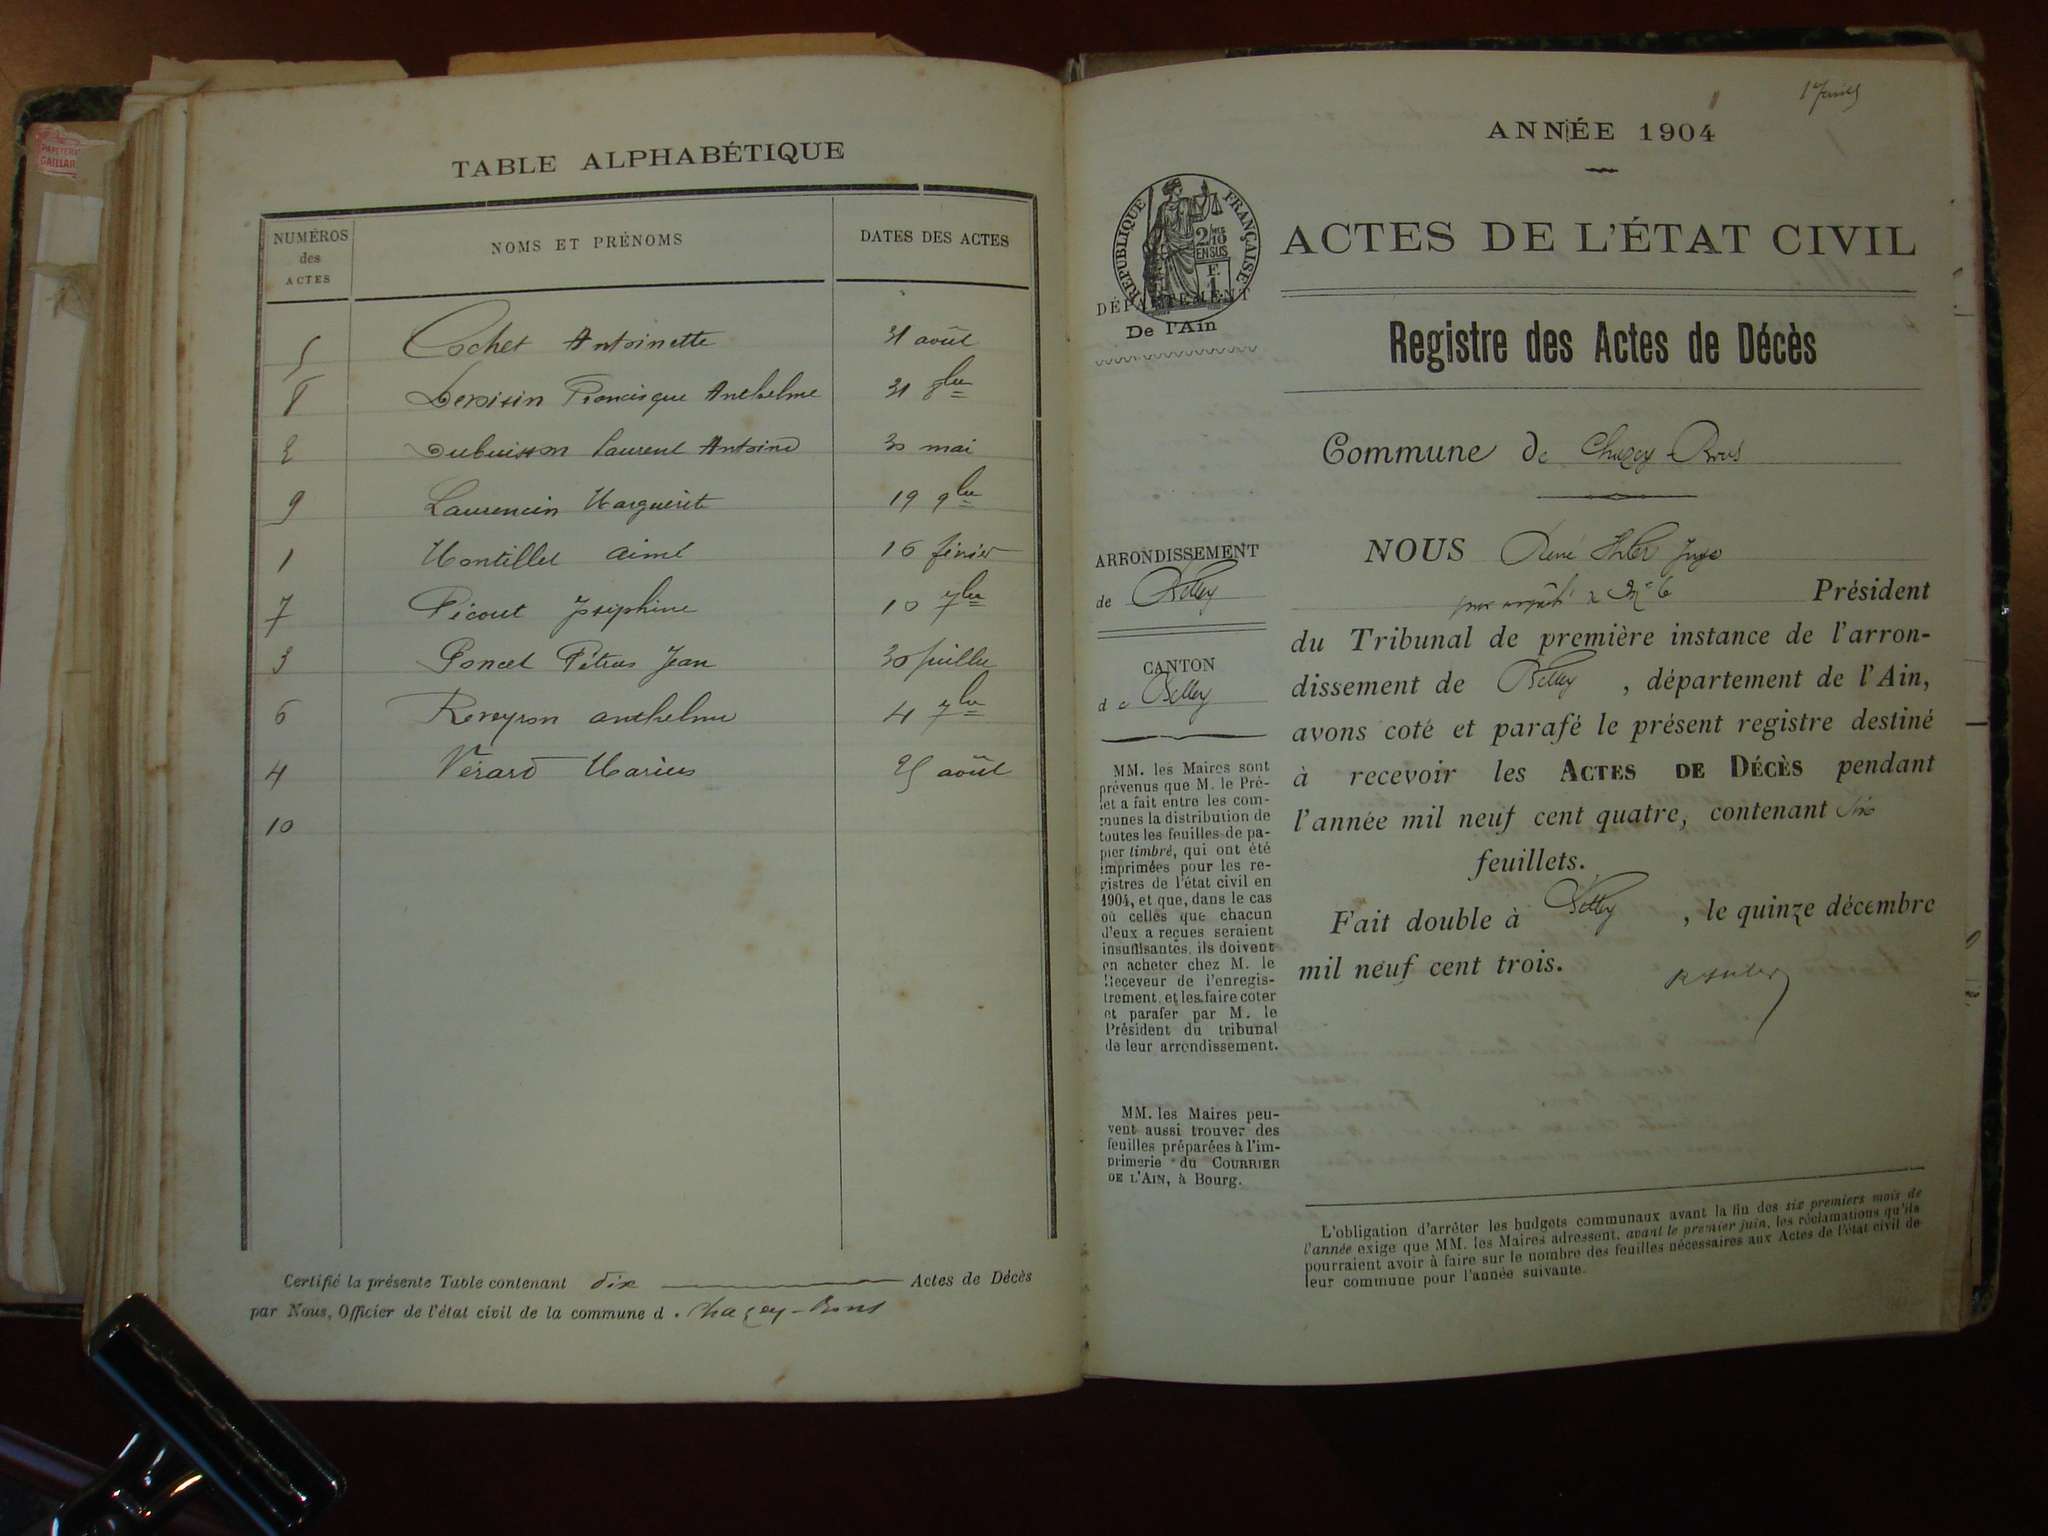 PAPETERIE
GAILLAR
TABLE ALPHABÉTIQUE
NUMÉROS des ACTES NOMS ET PRÉNOMS DATES DES ACTES
5 Cochet Antoinette 31 août
8 Francisque Anthelme 31 8bre
2 Dubuisson Laurent Antoine 30 mai
9 Laurencin Marguerite 19 9bre
1 Montillet Aimé 16 février
7 Pécout Joséphine 10 7bre
3 Poncet Pétrus Jean 30 juillet
6 Reveyron Anthelme 4 7bre
4 Vérard Marius 25 août
10
Certifié la présente Table contenant dix Actes de Décès
par Nous, Officier de l'état civil de la commune d Chazey-Bons
1er
ANNÉE 1904
RÉPUBLIQUE FRANÇAISE
2/10 EN SUS
F. 1
DÉPARTEMENT
De l'Ain
ACTES DE L'ÉTAT CIVIL
Registre des Actes de Décès
Commune de Chazey Bons
ARRONDISSEMENT
de Belley
CANTON
de Belley
MM. les Maires sont
prévenus que M. le Pré-
fet a fait entre les com-
munes la distribution de
toutes les feuilles de pa-
pier timbré, qui ont été
imprimées pour les re-
gistres de l'état civil en
1904, et que, dans le cas
où celles que chacun
d'eux a reçues seraient
insuffisantes, ils doivent
en acheter chez M. le
Receveur de l'enregis-
trement, et les faire coter
et parafer par M. le
Président du tribunal
de leur arrondissement.
MM. les Maires peu-
vent aussi trouver des
feuilles préparées à l'im-
primerie du COURRIER
DE L'AIN, à Bourg.
NOUS René Juge
Président
du Tribunal de première instance de l'arron-
dissement de Belley, département de l'Ain,
avons coté et parafé le présent registre destiné
à recevoir les ACTES DE DÉCÈS pendant
l'année mil neuf cent quatre, contenant six
feuillets.
Fait double à Belley, le quinze décembre
mil neuf cent trois.
L'obligation d'arrêter les budgets communaux avant la fin des six premiers mois de
l'année exige que MM. les Maires adressent, avant le premier juin, les réclamations qu'ils
pourraient avoir à faire sur le nombre des feuilles nécessaires aux Actes de l'état civil de
leur commune pour l'année suivante.